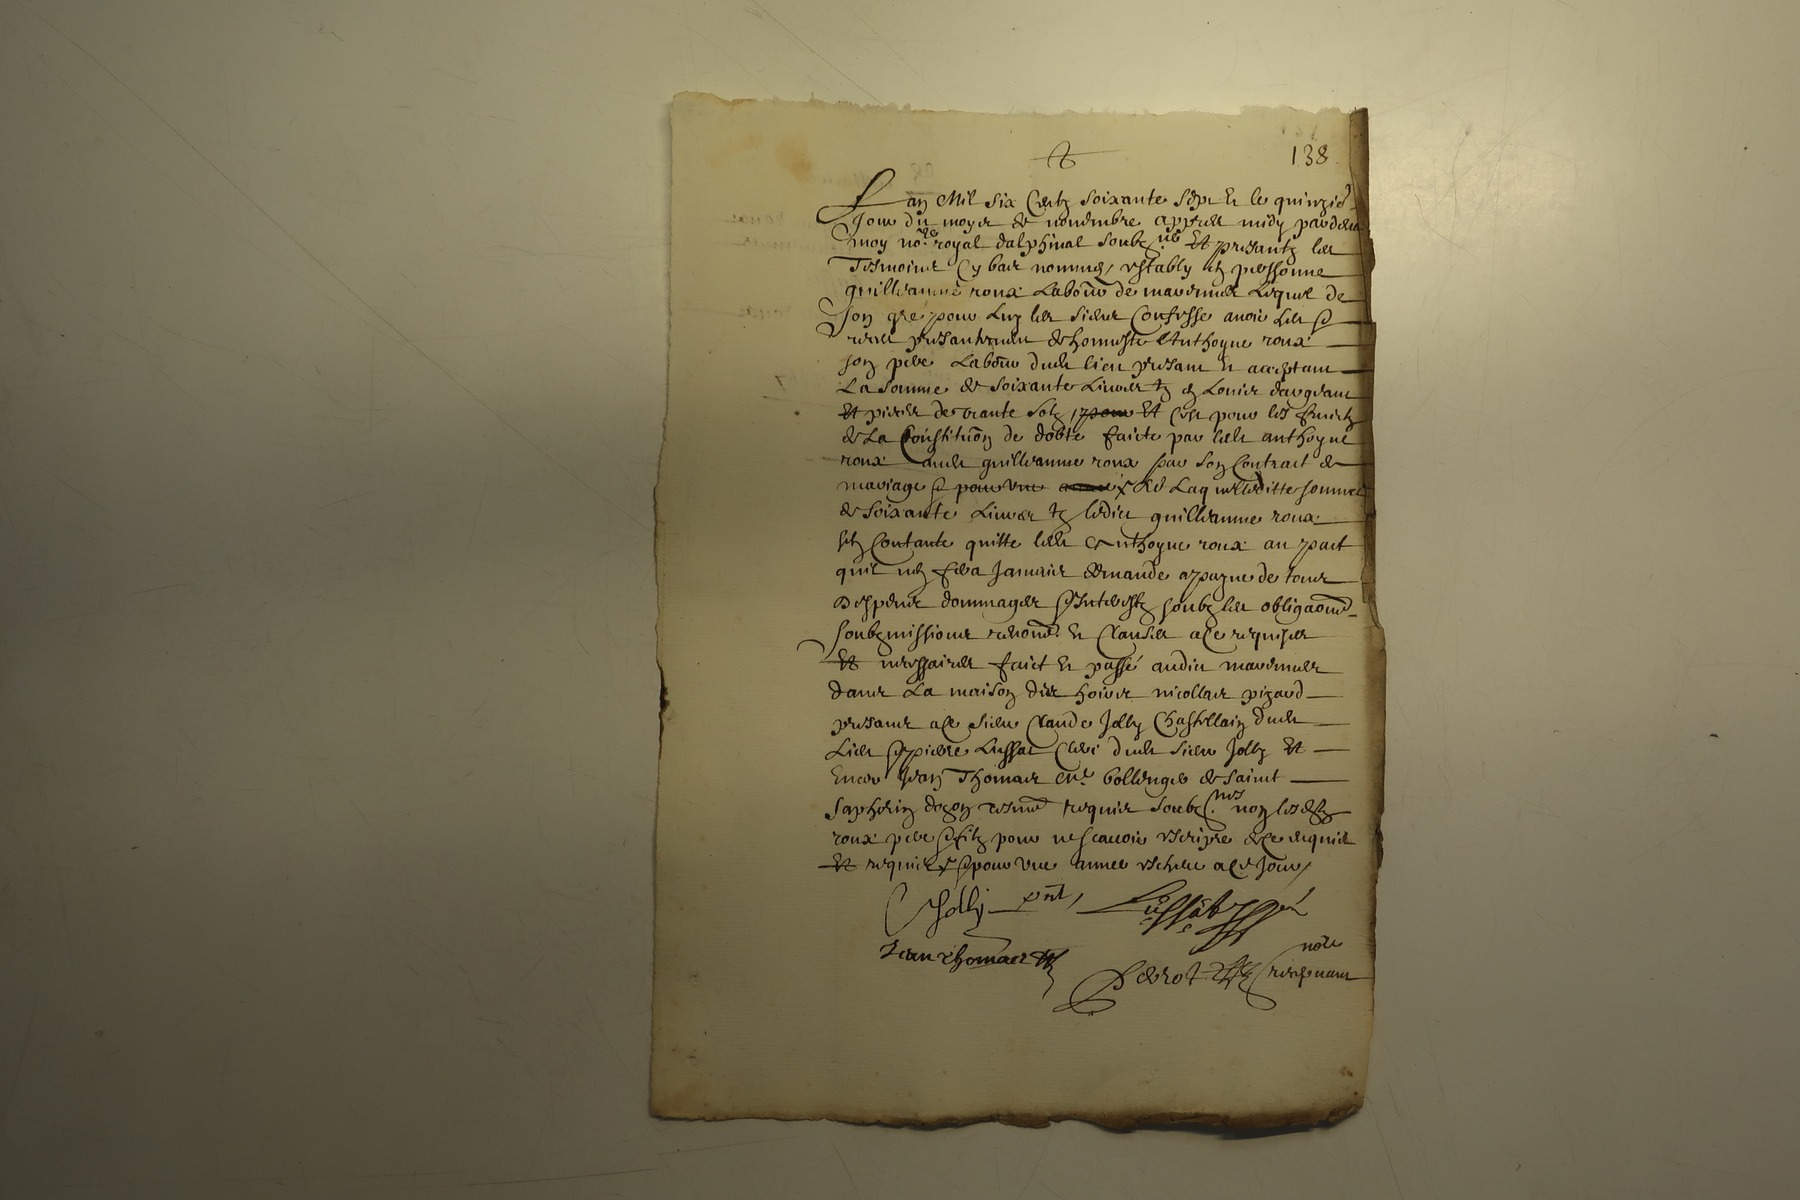 138
Lan Mil six Centz soixante sept et le quinzie
Jour du moys de novembre appres midy pardevan
moy no.re royal dalphinal soubz.né et presantz les
Tesmoins cy bas nommes, establÿ en personne
guilliaume roux Labour de mavernes Lequel de
son gre pour luy les siens Confesse avoir heu &
receu presantement de honneste Anthoyne roux
son pere Labour dudt lieu presant et acceptant
La somme de soixante Livres tz en Louis dargeant
Et pieces de trante solz pour Et c'est pour les fruictz
de La Constitution de dobte faicte par ledt anthoyne
roux audt guilliaume roux par son Contract de
mariage & pour une annee x De Laquelle ditte somme
de soixante Livres tz ledict guilliaume roux
sen Contante quitte ledt Anthoyne roux au pact
quil nen fera Jamais demande a payne de tous
Despens dommages & Interestz soubz les obligaons
soubzmissions renons et Clauses a ce requises
Et necessaires faict et passé audict mavernes
dans La maison des hoirs nicollas pigaud
presans a ce sieur Claude Jolly Chastellain dudt
Lieu & pierre Lussat Clerc dudt sieur Jolly Et
Encor Jean Thomas me bollenger de saint
saphorin dozon tesmo requis soubz.nes non lesdtz
roux pere & filz pour ne scavoir escripre de ce enquis
Et requis x & pour une annee escheue a ce Jour,
CJolly pnt, Lussat pnt
Jean thomas
Perrot nore recepvant